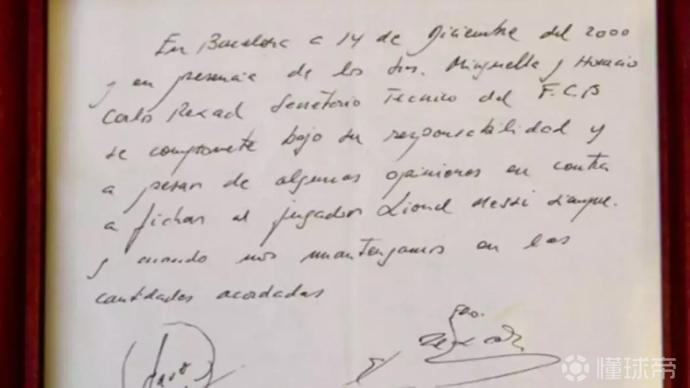 En Barcelona a 14 de Diciembre del 2000
y en presencia de los Sres. Minguella y Horacio
Carlos Rexach Secretario Técnico del F.C.B
se compromete bajo su responsabilidad y
a pesar de algunas opiniones en contra
a fichar al jugador Lionel Messi siempre
y cuando nos mantengamos en las
cantidades acordadas
懂球帝